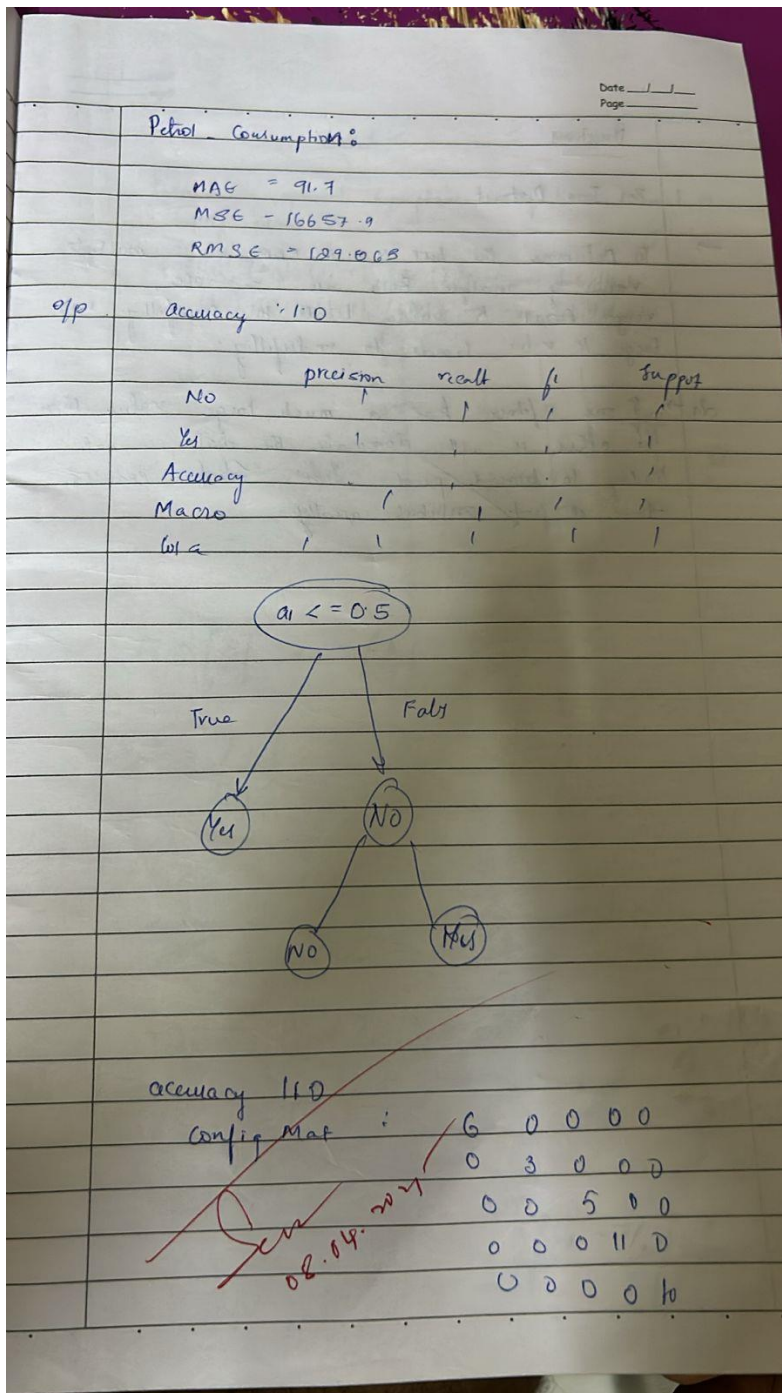 Date __/__/__
Page ______
Petrol - Consumption :
MAE = 91.7
MSE - 16657.9
RMSE = 129.065
o/p accuracy : 1.0
precision recall f1 Suppot
No 1 1 1 1
Yes 1 1 1 1
Accuracy
Macro 1 1 1 1
1 1 1 1 1
a1 <= 0.5
True Fals
Yes No
No Yes
accuracy 1.0
Config Mat : 6 0 0 0 0
0 3 0 0 0
0 0 5 0 0
0 0 0 11 0
0 0 0 0 10
08.04.